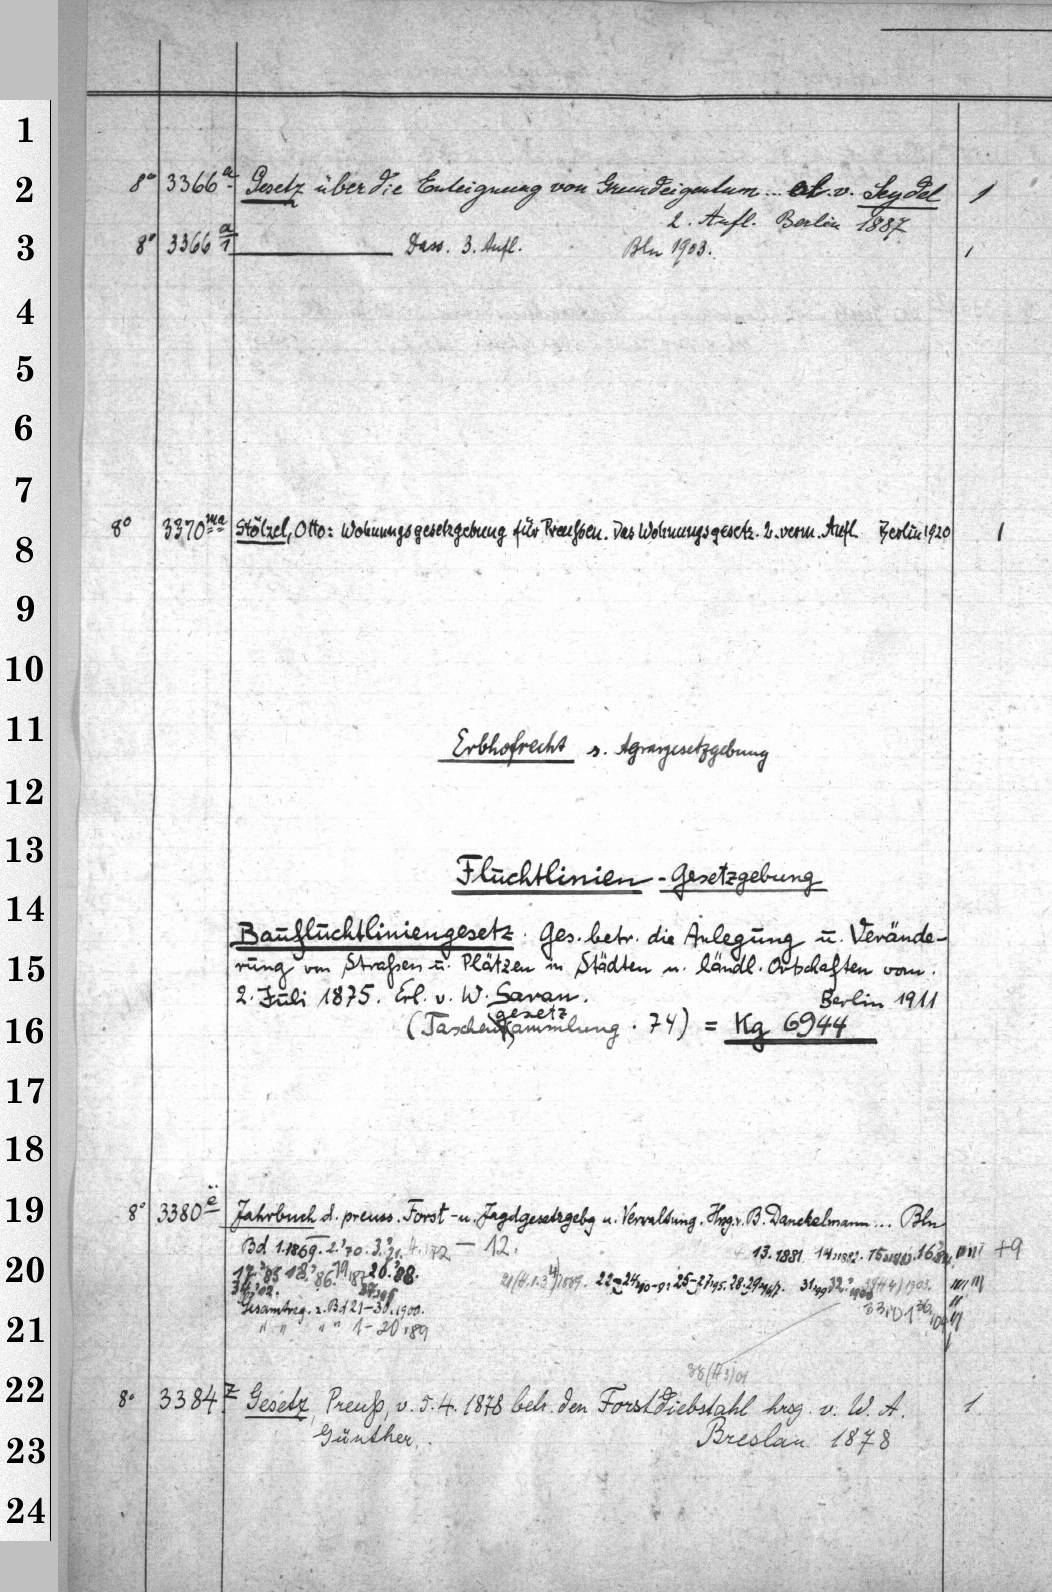 1
2
3
4
5
6
7
8
9
10
11
12
13
14
15
16
17
18
19
20
21
22
23
24
8° 3366 a Gesetz über die Enteignung von Grundeigentum ... v. Seydel 1
2. Aufl. Berlin 1887
8° 3366 a/1 Dass. 3. Aufl. Bln 1903. 1
8° 3370 ma Stölzel, Otto: Wohnungsgesetzgebung für Preußen. Das Wohnungsgesetz. 2. verm. Aufl. Berlin 1920 1
Erbhofrecht s. Agrargesetzgebung
Fluchtlinien-Gesetzgebung
Baufluchtliniengesetz. Ges. betr. die Anlegung u. Verände-
rung von Straßen u. Plätzen in Städten u. ländl. Ortschaften vom.
2. Juli 1875. Erl. v. W. Saran. Berlin 1911
gesetz
(Taschen sammlung. 74) = Kg 6944
8° 3380 ë Jahrbuch d. preuss. Forst- u. Jagdgesetzgebg u. Verwaltung. Hrsg. v. B. Danckelmann ... Bln
Bd 1.1869. 2.'70. 3.'71. 4. '72 — 12. 13.1881 14.1882. 15. 16. +9
17.'85 18.'86. 19 20.'88. 22 25-27 28. 29 31 32.
34.'02.
Gesamtreg. z. Bd 21-30. 1900.
" " " " 1-20. '89
8° 3384 z Gesetz, Preuß, v. 5.4.1878 betr. den Forstdiebstahl hrsg. v. W. A. 1
Günther. Breslau 1878